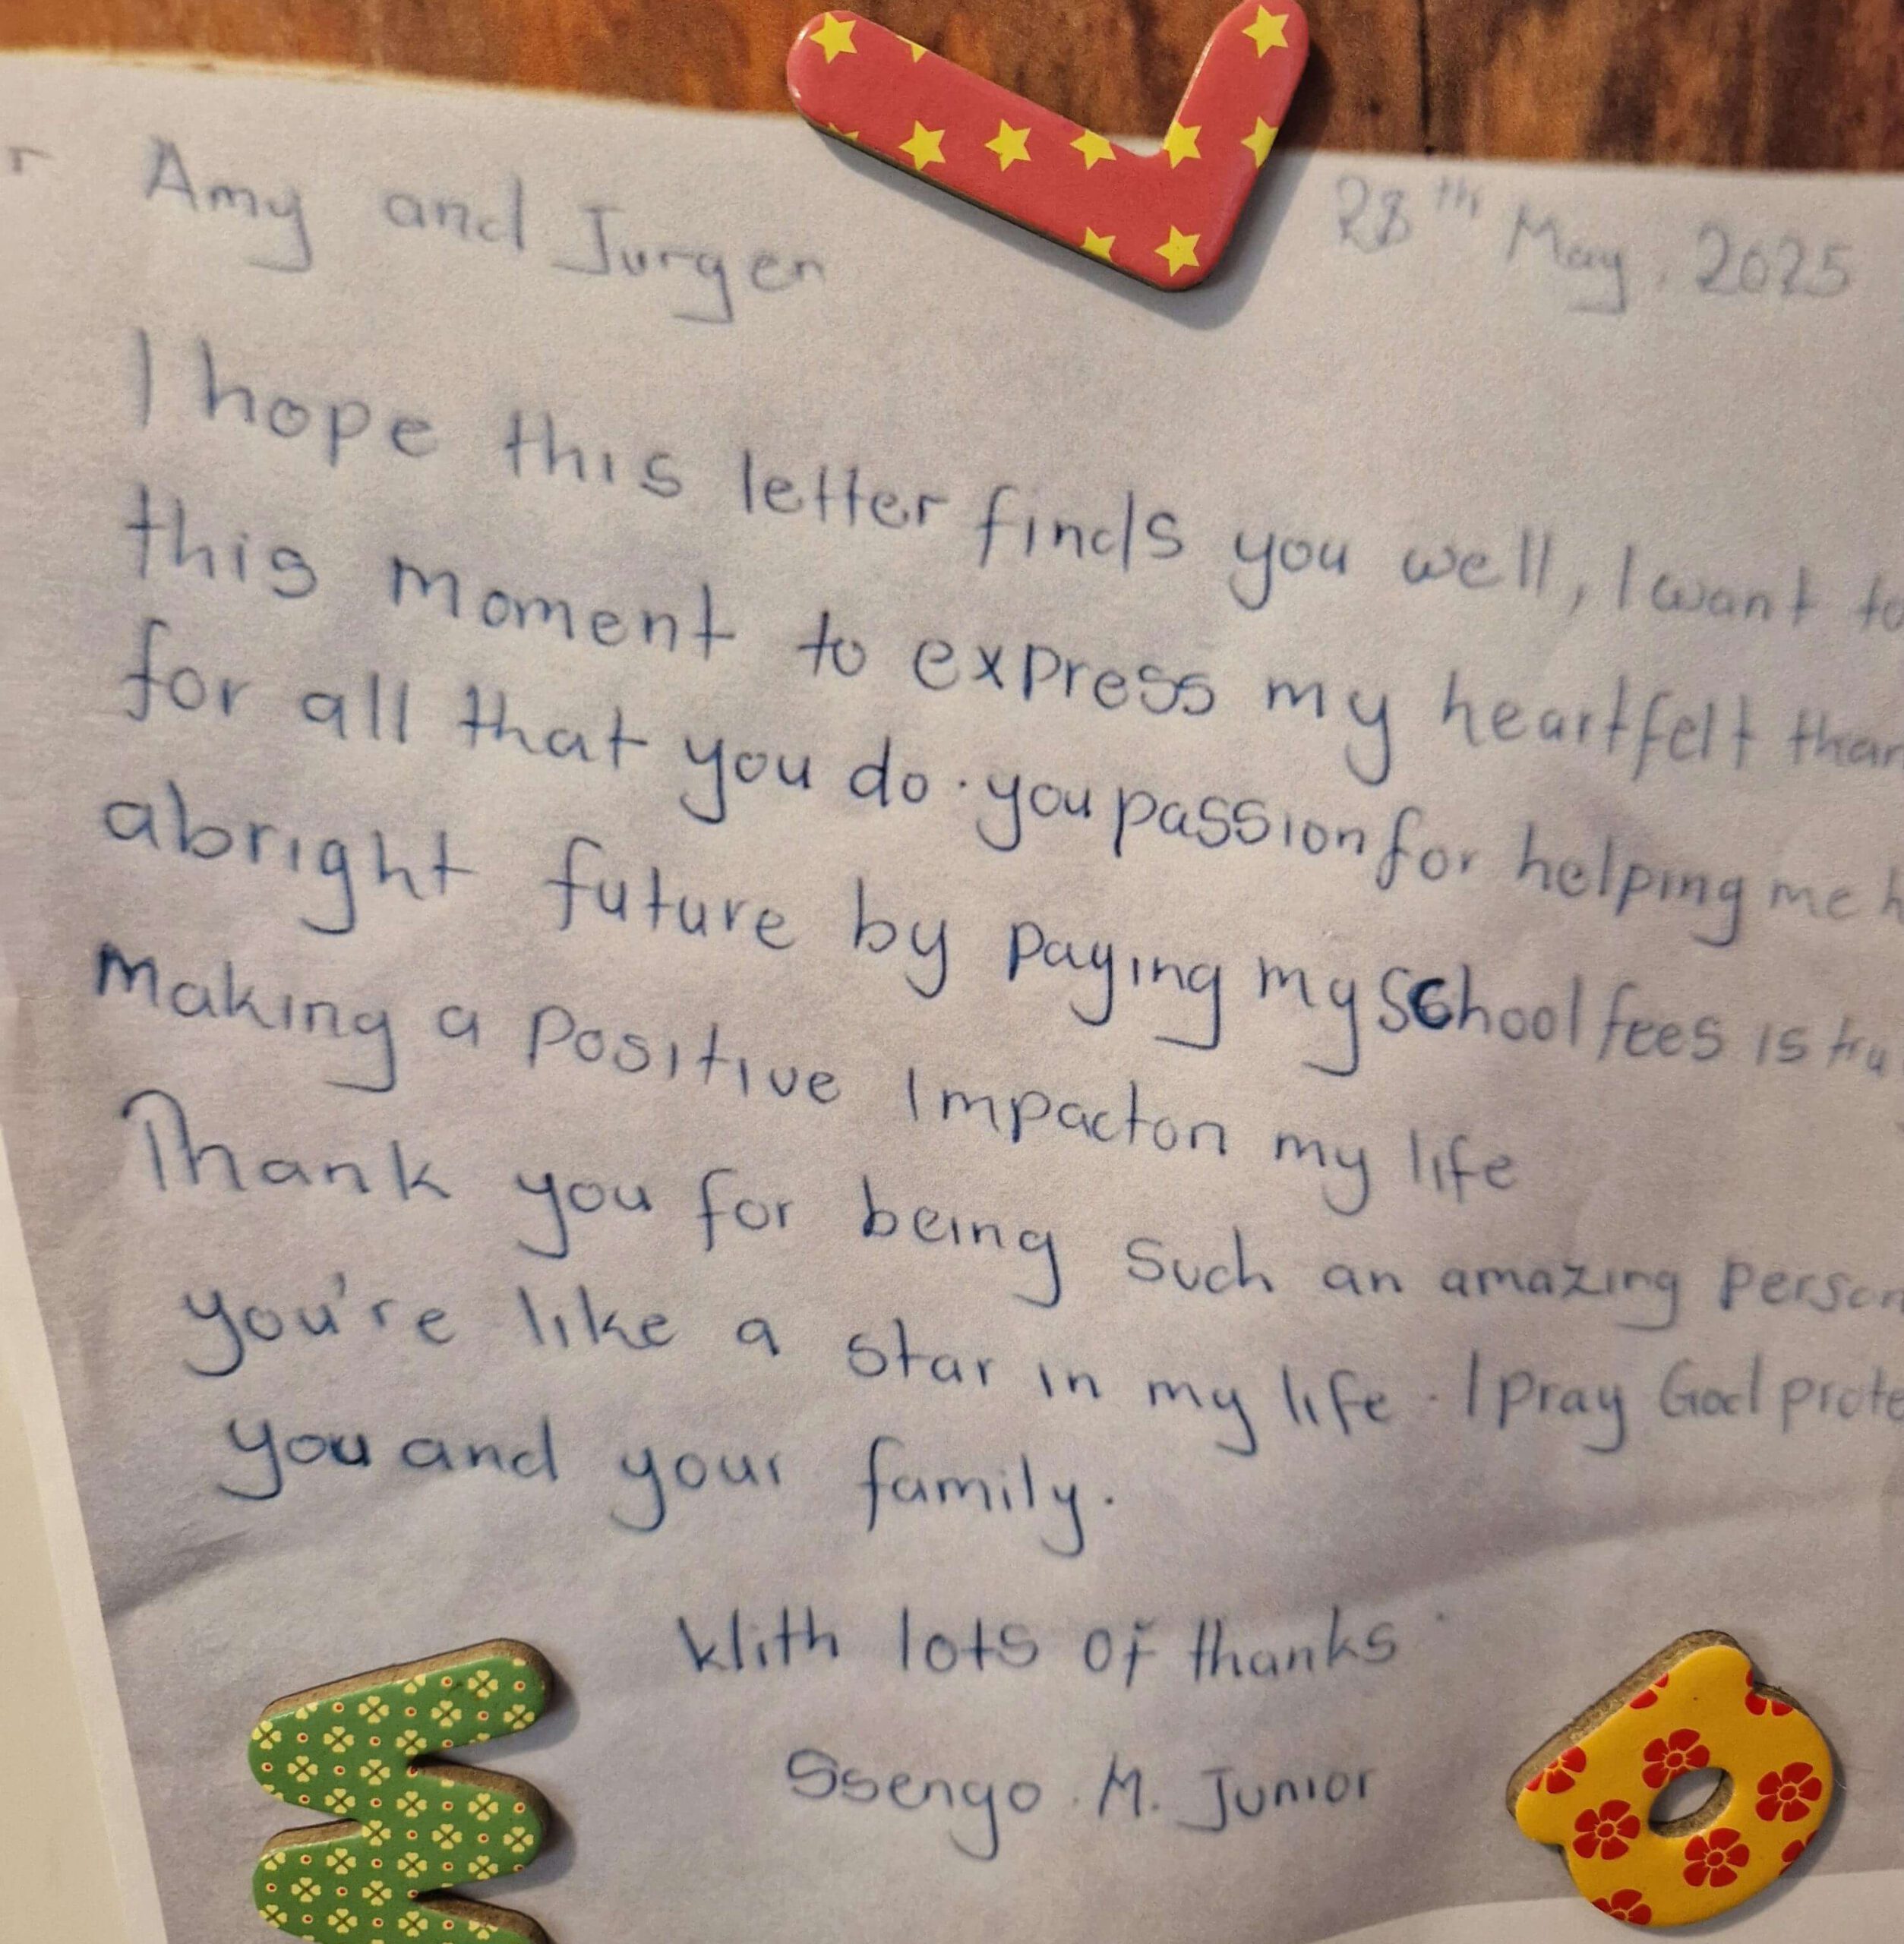 r Amy and Jurgen
28th May, 2025
I hope this letter finds you well, I want to
this moment to express my heartfelt than
for all that you do. you passion for helping me h
abright future by paying my school fees is tru
making a positive impacton my life
Thank you for being such an amazing person
you're like a star in my life. I pray God prote
you and your family.
With lots of thanks
Ssengo. M. Junior